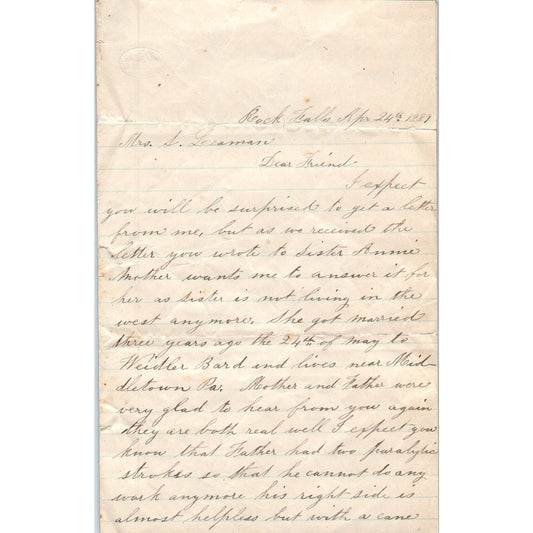 Rock Falls Apr 24th 1889
Mrs. S. Leaman
Dear Friend
I expect
you will be surprised to get a letter
from me, but as we received the
letter you wrote to sister Annie
Mother wants me to answer it for
her as sister is not living in the
west anymore. She got married
three years ago the 24th of may to
Weidler Bard and lives near Mid-
dletown Pa. Mother and Father were
very glad to hear from you again
they are both real well I expect you
know that Father had two paralytic
strokes so that he cannot do any
work anymore his right side is
almost helpless but with a cane